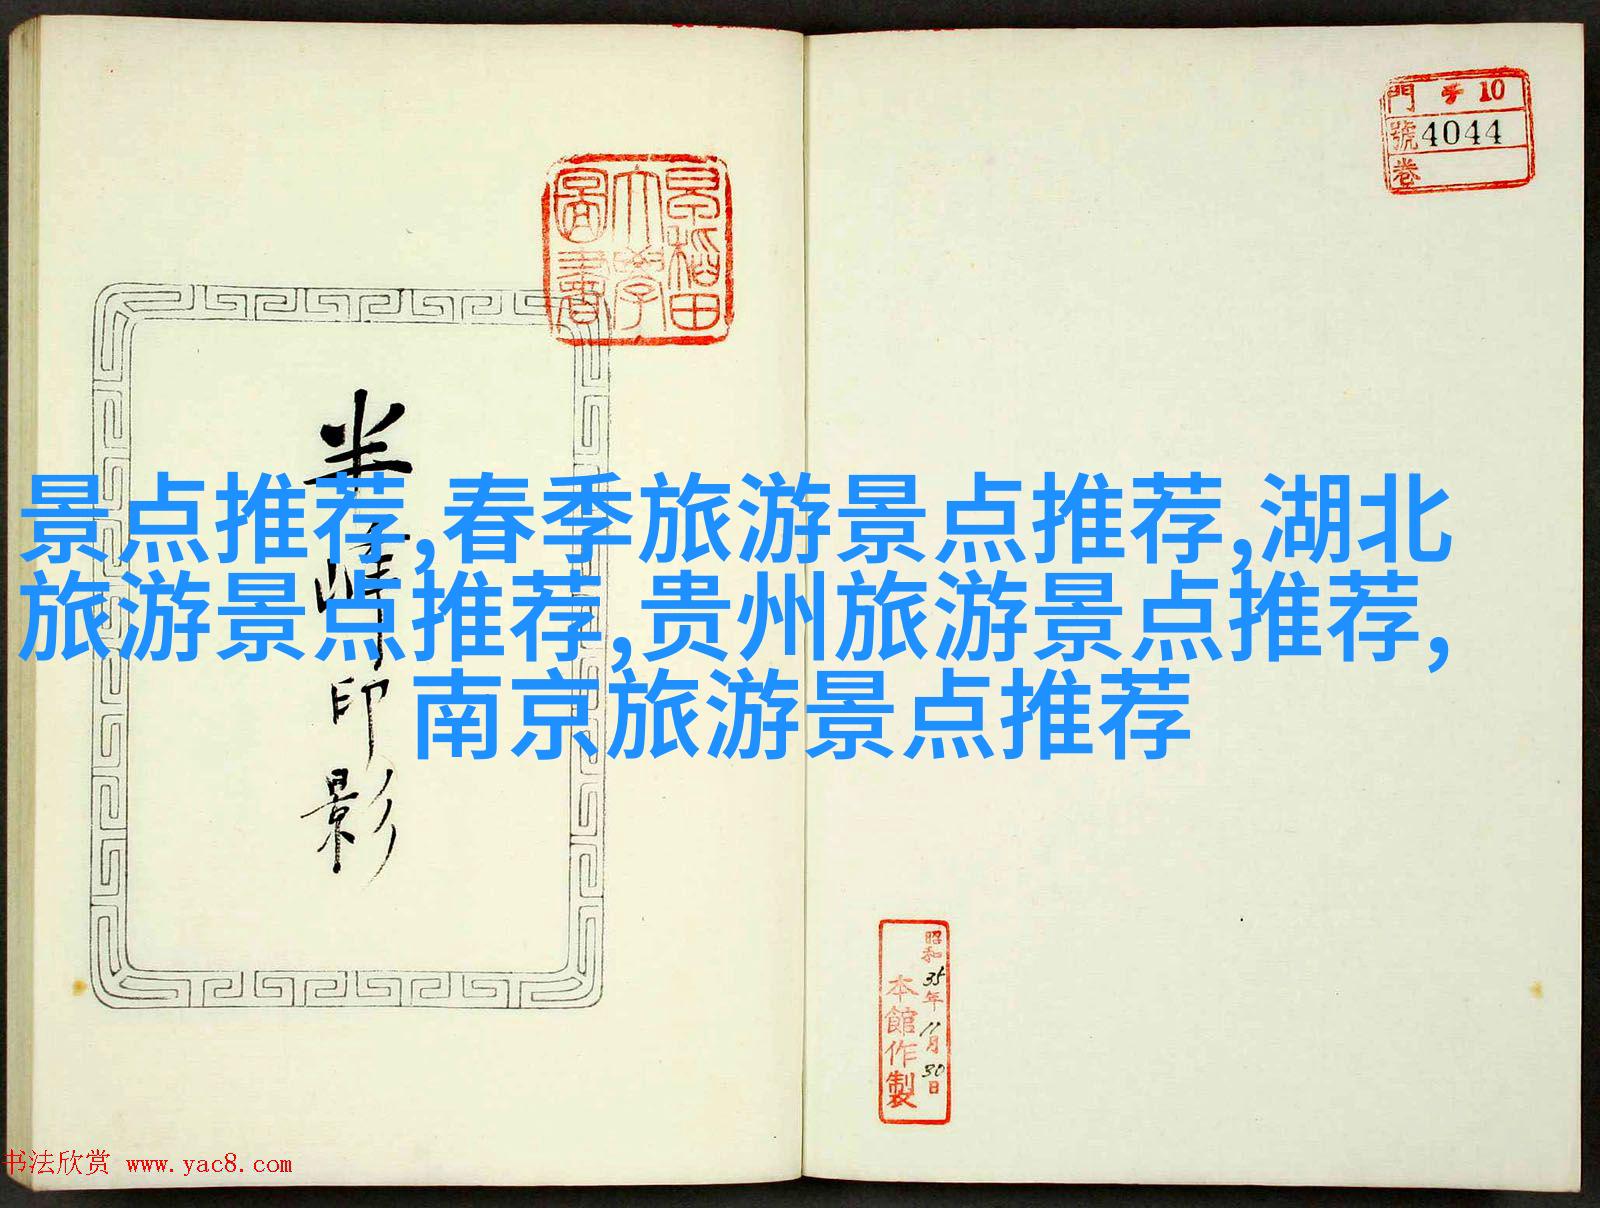 門 チ 10
號 4044
卷
早稲田
大學
圖書
半峰印影
景点推荐,春季旅游景点推荐,湖北
旅游景点推荐,贵州旅游景点推荐,
南京旅游景点推荐
昭和35年11月30日
本館作製
书法欣赏 www.yac8.com